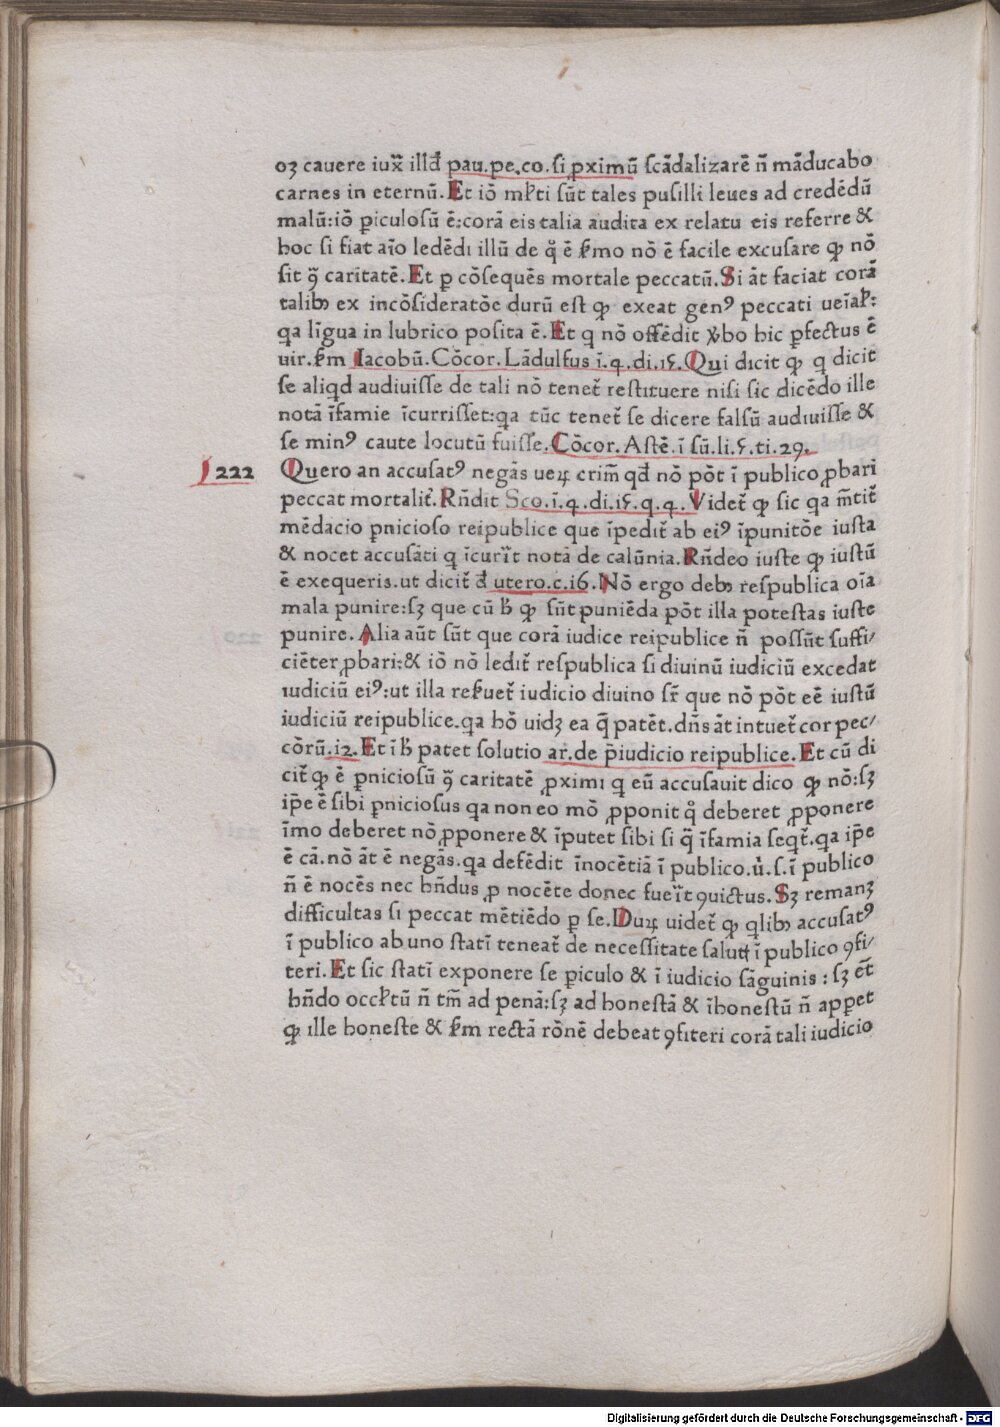 oꝫ cavere iux̄ illđ pau.pe.co.si ꝓximū scādalizarē n̄ māducabo
carnes in eternū.Et iō mł'ti sūt tales pusilli leues ad credēdū
malū:iō ꝑiculosū ē:corā eis talia audita ex relatu eis referre &
hoc si fiat aīo ledēdi illū de q̊ ē ẜmo nō ē facile excusare ꝙ nō
sit ꝯ̄ caritatē.Et ꝑ cōsequēs mortale peccatū.Si āt faciat corā
talibꝫ ex incōsideratōe durū est ꝙ exeat genꝰ peccati ueīał':
qa līgua in lubrico posita ē.Et q nō offēdit v̄bo hic ꝑfectus ē
uir.ẜm Iacobū.Cōcor.Lādulfus ī.4.di.15.Qui dicit ꝙ q dicit
se aliqd audiuisse de tali nō tenet̄ restituere nisi sic dicēdo ille
notā īfamie īcurrisset:qa tūc tenet̄ se dicere falsū audiuisse &
se minꝰ caute locutū fuisse.Cōcor.Astē.ī sū.li.5.ti.29.
222 Quero an accusatꝰ negās ueꝝ crim̄ qđ nō pōt ī publico ꝓbari
peccat mortalit̄.Rn̄dit Sco.ī.4.di.15.q.4.Videt̄ ꝙ sic qa m̄tit̄
mēdacio ꝑnicioso reipublice que īpedit̄ ab eiꝰ īpunitōe iusta
& nocet accusāti q īcurīt notā de calūnia.Rn̄deo iuste ꝙ iustū
ē exequeris.ut dicit̄ đ utero.c.16.Nō ergo debꝫ respublica oīa
mala punire:sꝫ que cū ħ ꝙ sūt puniēda pōt illa potestas iuste
punire.Alia aūt sūt que corā iudice reipublice n̄ possūt suffi/
ciēter ꝓbari:& iō nō ledit̄ respublica si diuinū iudiciū excedat
iudiciū eiꝰ:ut illa reẜuet̄ iudicio diuino sr̄ que nō pōt eē iustū
iudiciū reipublice.qa hō uidꝫ ea q̄ patēt.dn̄s āt intuet̄ cor pec/
cōrū.12.Et ī ħ patet solutio ar.de p̄iudicio reipublice.Et cū di
cit̄ ꝙ ē ꝑniciosū ꝯ̄ caritatē ꝓximi q eū accusauit dico ꝙ nō:sꝫ
ip̄e ē sibi ꝑniciosus qa non eo mō ꝓponit q̊ deberet ꝓponere
īmo deberet nō ꝓponere & īputet sibi si q̄ īfamia seqt̄.qa ip̄e
ē cā.nō āt ē negās.qa defēdit īnocētiā ī publico.u̇.s.ī publico
n̄ ē nocēs nec bn̄dus ꝓ nocēte donec fueīt ꝯuictus.Sꝫ remanꝫ
difficultas si peccat mētiēdo ꝑ se.Duꝝ uidet̄ ꝙ qlibꝫ accusatꝰ
ī publico ab uno statī teneat̄ de necessitate salutꝭ ī publico ꝯfi/
teri.Et sic statī exponere se ꝑiculo & ī iudicio sāguinis : sꝫ et̄
bn̄do occł'tū n̄ tm̄ ad penā:sꝫ ad honestā & īhonestū n̄ apꝑet
ꝙ ille honeste & ẜm rectā rōnē debeat ꝯfiteri corā tali iudicio
Digitalisierung gefördert durch die Deutsche Forschungsgemeinschaft - DFG